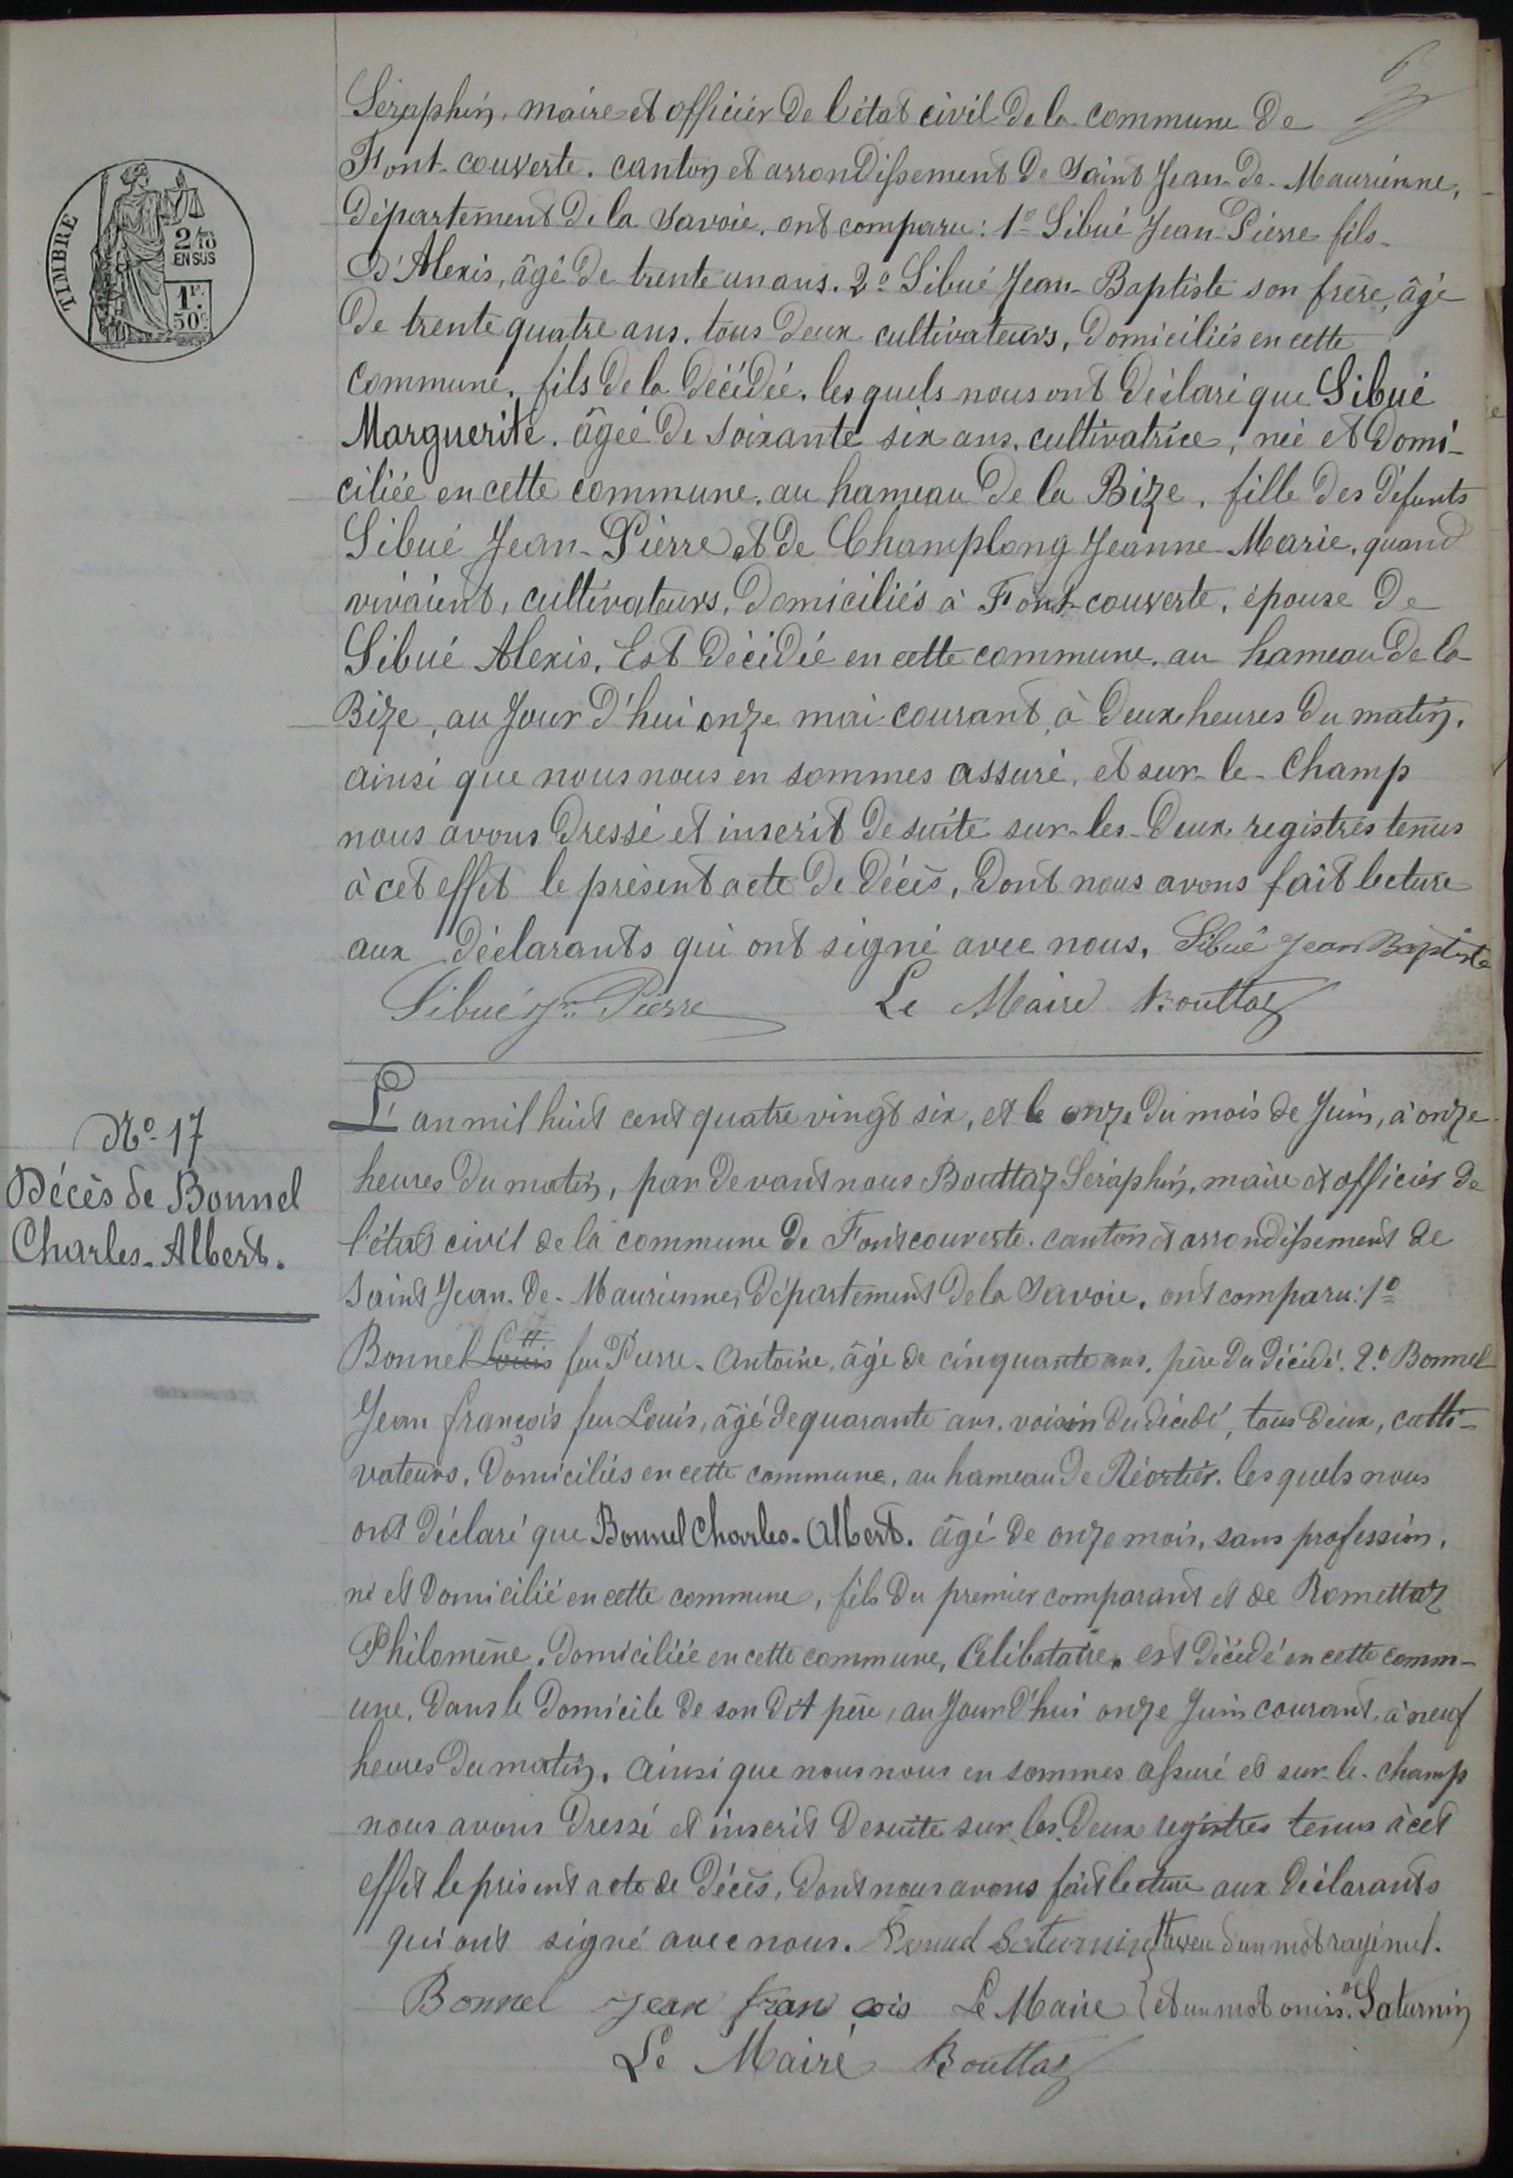 TIMBRE
2/10
EN SUS
1F.
50c
Séraphin, maire et officier de l'état civil de la commune de
Font-couverte. canton et arrondissement de Saint Jean-de-Maurienne,
département de la Savoie, ont comparu: 1º Sibué Jean-Pierre fils
d'Alexis, âgé de trente un ans. 2º Sibué Jean-Baptiste son frère, âgé
de trente quatre ans, tous deux cultivateurs, domiciliés en cette
commune, fils de la décédée, les quels nous ont déclaré que Sibué
Marguerite, âgée de soixante six ans, cultivatrice, née et domi-
ciliée en cette commune, au hameau de la Bize, fille des défunts
Sibué Jean-Pierre et de Champlong Jeanne-Marie, quand
vivaient, cultivateurs, domiciliés à Font-couverte, épouse de
Sibué Alexis, Est décédée en cette commune, au hameau de la
Bize, au Jour d'hui onze mai courant, à deux heures du matin,
ainsi que nous nous en sommes assuré, et sur-le-champ
nous avons dressé et inscrit de suite sur-les-deux registres tenus
à cet effet le présent acte de décès, dont nous avons fait lecture
aux déclarants qui ont signé avec nous. Sibué Jean Baptiste
Sibué Jn Pierre Le Maire Bouttaz
Nº 17
Décès de Bonnel
Charles-Albert.
L'an mil huit cent quatre vingt six, et le onze du mois de Juin, à onze
heures du matin, par devant nous Bouttaz Séraphin, maire et officier de
l'état civil de la commune de Fontcouverte. canton et arrondissement de
Saint Jean-de-Maurienne, département de la Savoie, ont comparu: 1º
Bonnel Louis feu Pierre-Antoine, âgé de cinquante ans, père du décédé. 2º Bonnel
Jean françois feu Louis, âgé de quarante ans, voisin du décédé, tous deux, culti-
vateurs, domiciliés en cette commune, au hameau de Réortier. les quels nous
ont déclaré que Bonnel Charles-Albert. âgé de onze mois, sans profession,
né et domicilié en cette commune, fils du premier comparant et de Romettaz
Philomène, domiciliée en cette commune, Célibataire, est décédé en cette comm-
une, dans le domicile de son dit père, au Jour d'hui onze Juin courant, à neuf
heures du matin, ainsi que nous nous en sommes assuré et sur-le-champ
nous avons dressé et inscrit de suite sur les deux registres tenus à cet
effet le présent acte de décès, dont nous avons fait lecture aux déclarants
qui ont signé avec nous. Saturnin d'un mot rayé nul.
Bonnel Jean françois Le Maire et un mot omis. Saturnin
Le Maire Bouttaz